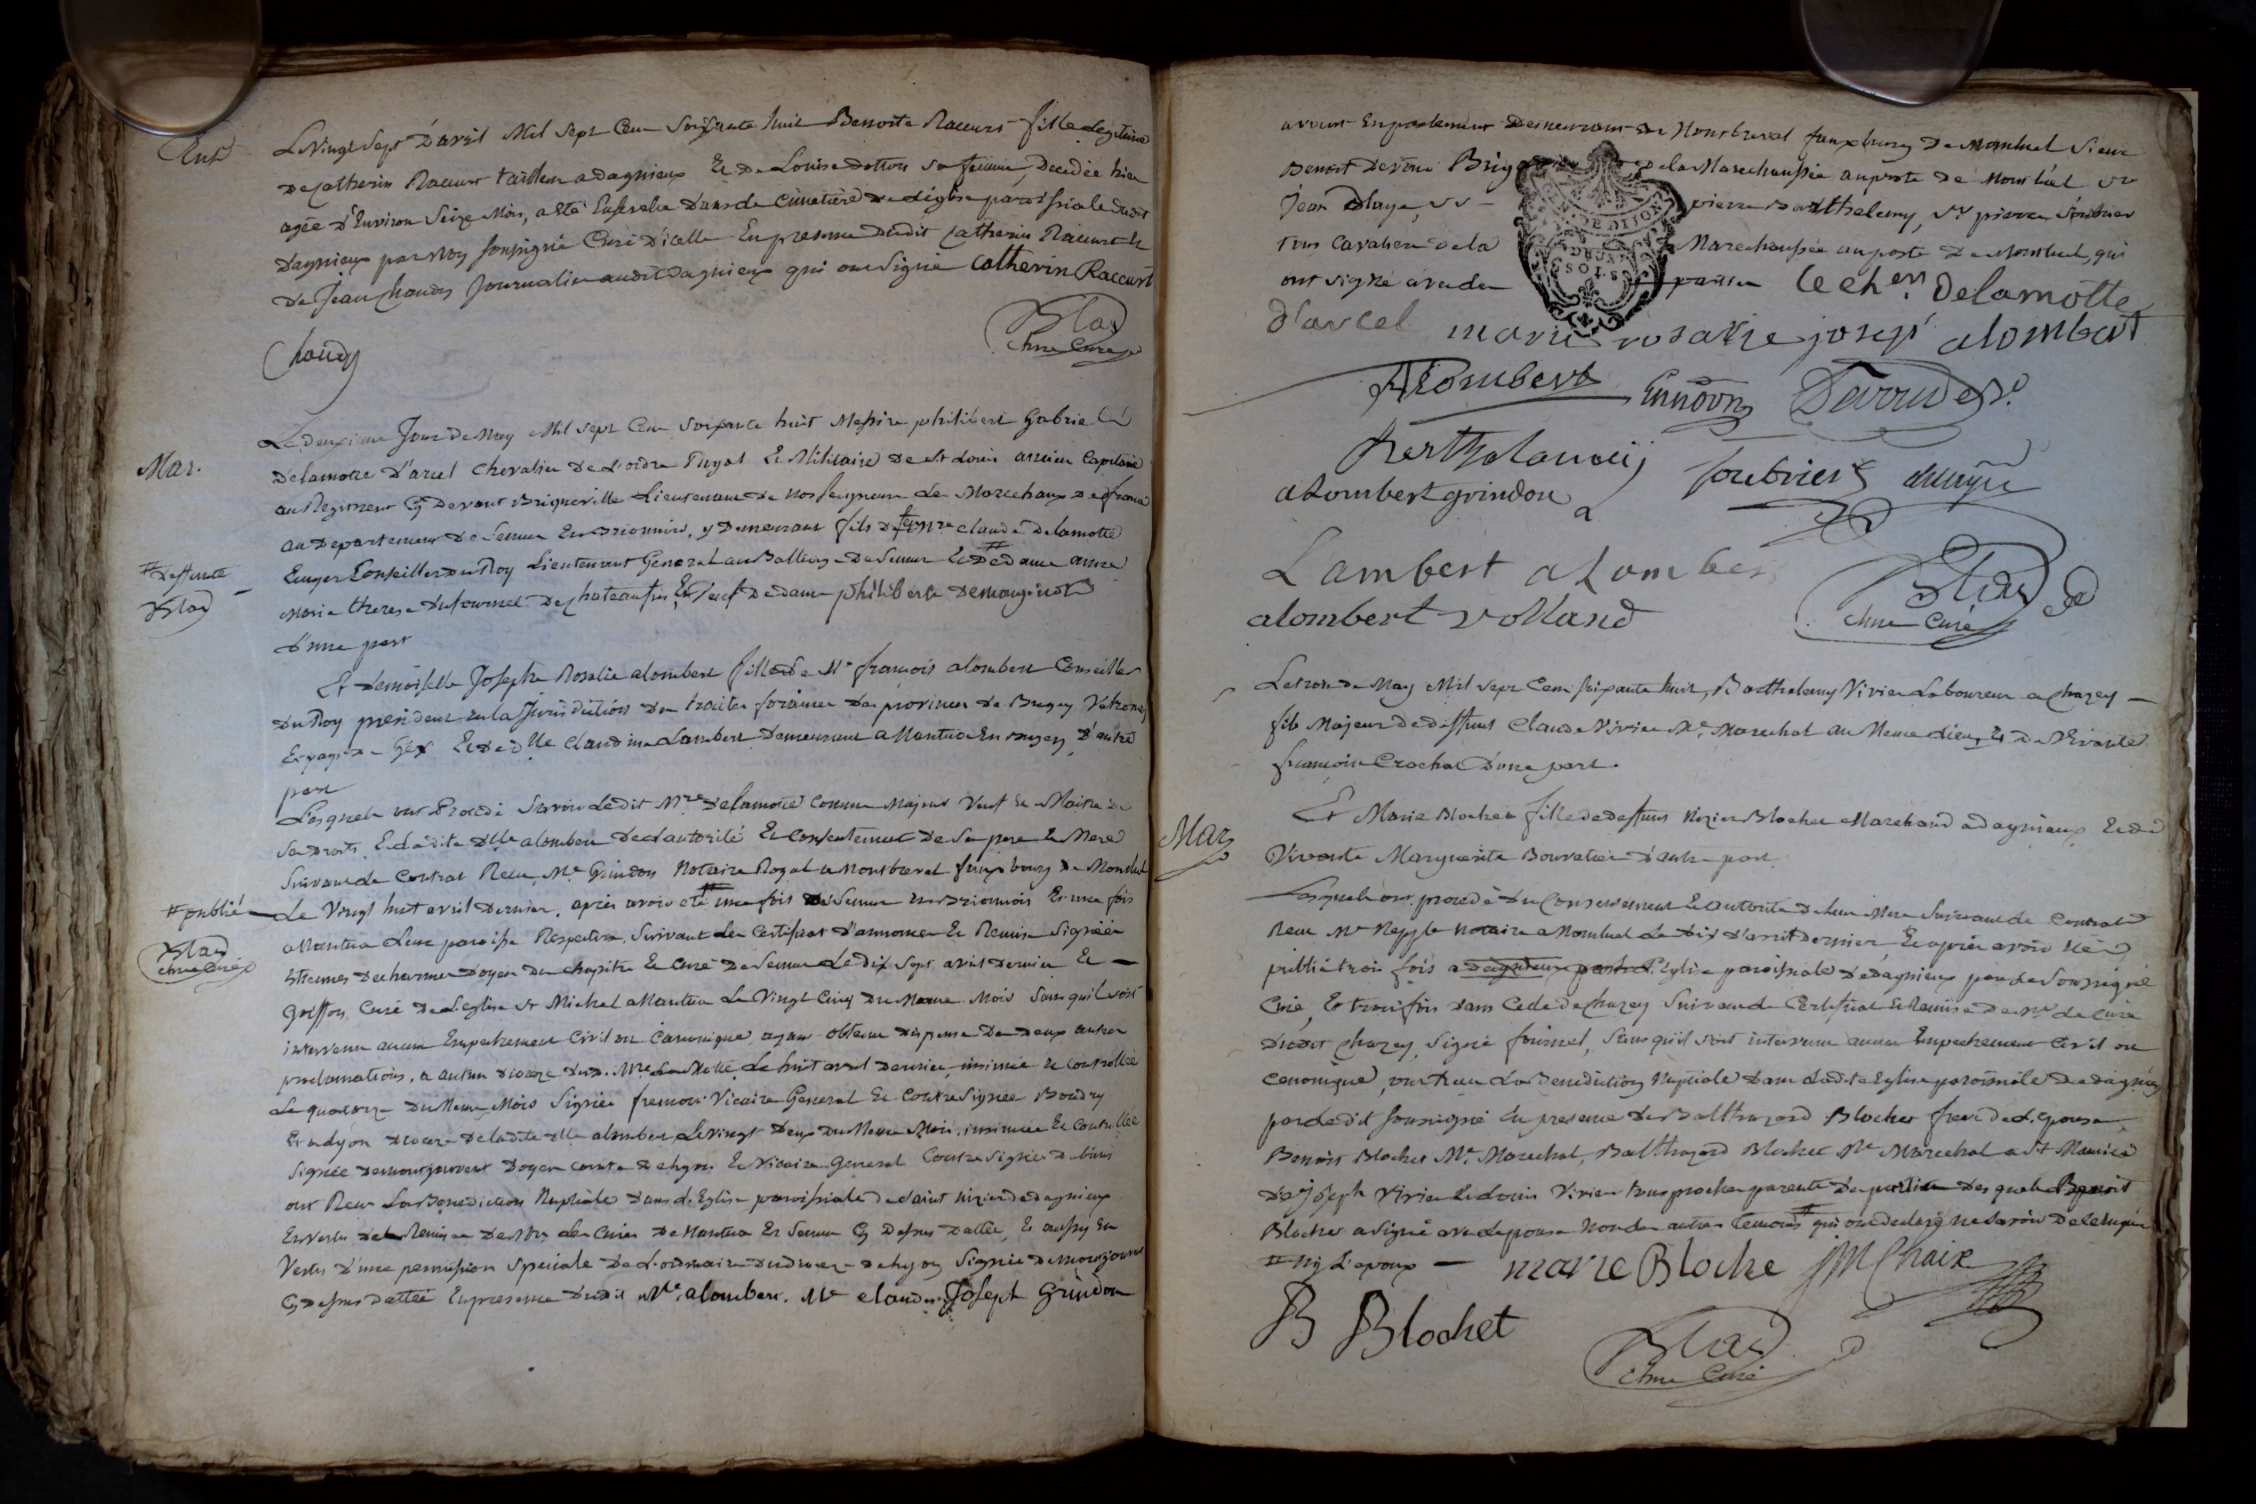 Ent
Le Vingt Sept D'avril Mil Sept Cent Soixante huit Benoite Raccurt fille Legitime
De Catherin Raccurt tailleur a dagnieux Et De Louise dotton sa femme, Decedée hier
agée D'Environ Seize Mois, a Eté Ensevelie Dans le Cimetière De L'église paroissiale dudit
Dagnieux par Moy Soussigné Curé D'icelle En presence Dudit Catherin Raccurt Et
De Jean Chaudy Journalier audit Dagnieux qui ont Signé Catherin Raccurt
Chaudy
Blad
Curé
Mar.
Le deuxieme Jour De May Mil Sept Cent Soixante huit Messire philibert Gabriel
Delamotte D'arcel Chevalier De L'ordre Royal Et Militaire De St Louis ancien Capitaine
au Regiment Cy Devant Briqueville Lieutenant De Nosseigneurs Les Marechaux De france
au Departement De Semur En Brionnois, y Demeurant fils De Claude Delamotte
Ecuyer Conseiller Du Roy Lieutenant General au Balliage De Semur Et De # dame anne
# deffunte
Blad
Marie therese Dufournel De chateaufer, Et Veuf De dame philiberte Demauginot
D'une part
Et Demoiselle Josephe Rosalie alombert fille De Mr françois alombert Conseiller
Du Roy president En la Jurisdiction Des traites foraines Des provinces De Bugey Valromey
Et pays De Gex Et De dlle Claudine Lambert Demeurant a Nantua En Bugey D'autre
part
Lesquels ont Procedé Savoir Ledit Mre Delamotte Comme Majeur Veuf Et Maitre de
Ses Droits, Et Ladite dlle alombert De L'autorité Et Consentement De Ses pere Et Mere
Suivant Le Contrat Reçu Me Grindon Notaire Royal a Montbreval fauxbourg De Montluel
Le Vingt huit avril Dernier, après avoir eté # une fois a Semur En Brionnois Et une fois
# publié
Blad
Curé
a Nantua Leurs paroisses Respectives, Suivant Les Certificat D'annonces Et Remises Signées
Doyen Du Chapitre Et Curé De Semur Le dix Sept avril Dernier Et
Griffon Curé De L'Eglise St Michel a Nantua Le Vingt Cinq Du Meme Mois Sans qu'il soit
intervenu aucun Empechement Civil ou Canonique, ayant obtenu Dispense Des Deux autres
proclamations, a autun Diocèze Dud. Mre La Motte Le huit avril Dernier, insinuée Et Controllée
Le quatorze Du Meme Mois Signée fremont Vicaire General Et Contre Signée Boudry
Et a Lyon Diocèze De Ladite dlle alombert Le Vingt Deux Du Meme Mois, insinuée Et Controllée
Signée Demontjouvent Doyen Comte De Lyon Et Vicaire General Contre Signée
ont Reçu La Benediction Nuptiale Dans L'Eglise paroissiale De Saint Nizier De dagnieux
En Vertu Des Remises De Mrs Les Curés De Nantua Et Semur Cy Dessus Dattée, Et aussy En
Vertu D'une permission Speciale De L'ordinaire Du diocèze De Lyon Signée Demontjouvent
Cy Dessus Dattée En presence Dudit Mr alombert, Me Claude Joseph Grindon
avocat En parlement Demeurant De Montbreval fauxbourg De Montluel Sieur
Benoit Devoue Brig De la Marechaussée au poste De Montluel Sr
Jean Pluye, Sr pierre Barthelemy, Sr pierre Soubrier
tous Cavaliers De la Marechaussée au poste De Montluel, qui
ont Signé avec les parties Le cher Delamotte
d'arcel marie rosalie josephe alombert
Alombert Grindon Devoude
Berthelemy Soubrier
alombert grindon
Lambert alombert
alombert volland
Blad
Curé
Mar.
Le trois De May Mil Sept Cent Soixante huit, Barthelemy Vivier Laboureur a Chazey
fils Majeur De deffunt Claude Vivier Me Marechal au Meme Lieu, Et De Vivante
françoise Crochat D'une part.
Et Marie Blochet fille De deffunt Nizier Blochet Marchand a dagnieux, Et De
Vivante Marguerite Bouvatier D'autre part
Lesquels ont procedé Du Consentement Et autorité De leur Mere Suivant Le Contrat
Reçu Me Notaire a Montluel Le Dix D'avril Dernier Et après avoir eté
publié trois fois a L'Eglise paroissiale De dagnieux par Le Soussigné
Curé, Et trois fois Dans Celle De Chazey Suivant Le Certificat Et Remise De Mr Le Curé
Dudit Chazey, Signé fournel, Sans qu'il Soit intervenu aucun Empechement Civil ou
Canonique, ont Reçu La Benediction Nuptiale Dans Ladite Eglise paroissiale De dagnieux
par Ledit Soussigné En presence De Balthazard Blochet frere De L'Epouse,
Benoist Blochet Me Marechal, Balthazard Blochet Me Marechal a St Maurice
De Joseph Vivier Et Louis Vivier tous proches parents Des parties Des quels Benoist
Blochet a Signé avec L'epouse Non les autres temoins # qui ont declaré ne Savoir De ce Enquis
# ny L'epoux — marie Bloche JM Chaix
B Blochet
Blad
Curé